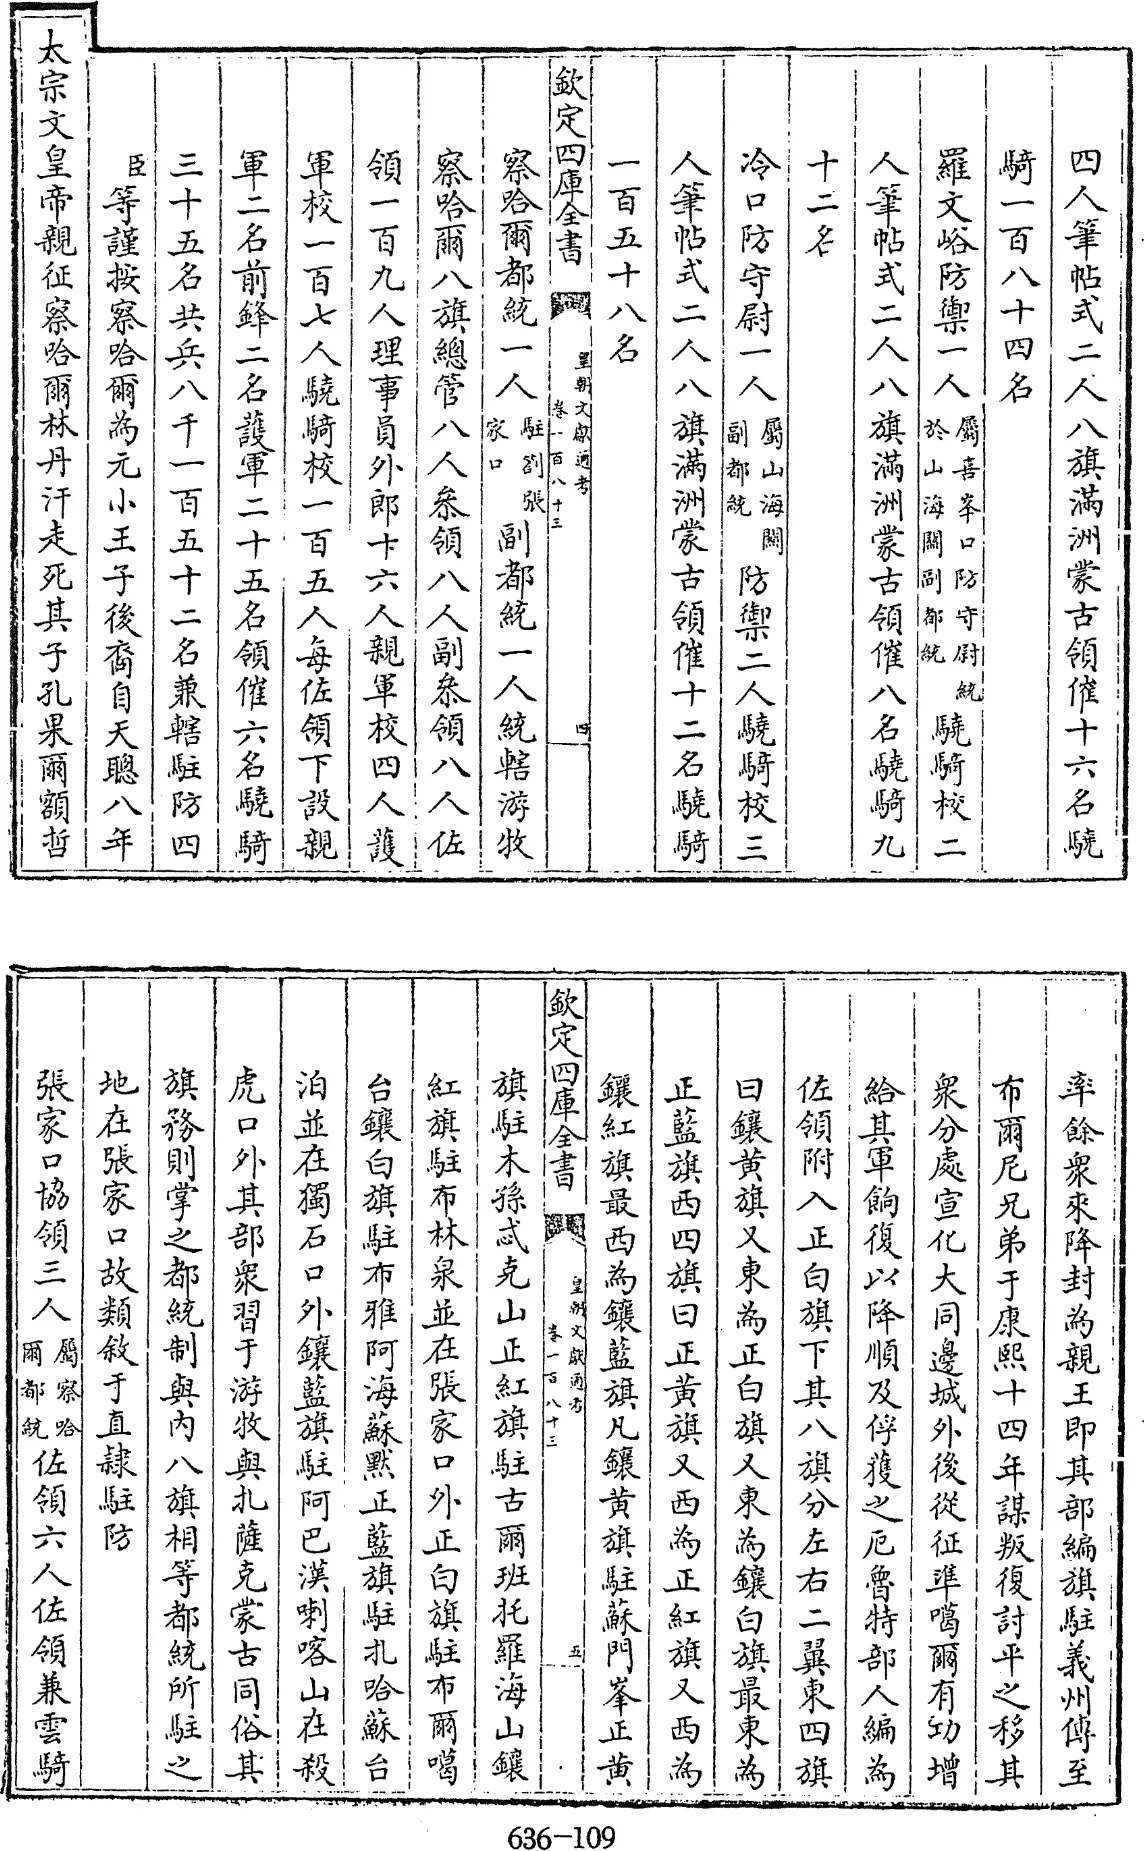 四人筆帖式二人八旗滿洲蒙古領催十六名驍
騎一百八十四名
羅文峪防禦一人屬喜峯口防守尉統於山海關副都統驍騎校二
人筆帖式二人八旗滿洲蒙古領催八名驍騎九
十二名
冷口防守尉一人屬山海關副都統防禦二人驍騎校三
人筆帖式二人八旗滿洲蒙古領催十二名驍騎
一百五十八名
欽定四庫全書 皇朝文獻通考 卷一百八十三 四
察哈爾都統一人駐劄張家口副都統一人統轄游牧
察哈爾八旗總管八人叅領八人副叅領八人佐
領一百九人理事員外郎十六人親軍校四人護
軍校一百七人驍騎校一百五人每佐領下設親
軍二名前鋒二名護軍二十五名領催六名驍騎
三十五名共兵八千一百五十二名兼轄駐防四
臣等謹按察哈爾為元小王子後裔自天聰八年
太宗文皇帝親征察哈爾林丹汗走死其子孔果爾額哲
率餘衆來降封為親王即其部編旗駐義州傳至
布爾尼兄弟于康熙十四年謀叛復討平之移其
衆分處宣化大同邊城外後從征準噶爾有功增
給其軍餉復以降順及俘獲之厄魯特部人編為
佐領附入正白旗下其八旗分左右二翼東四旗
曰鑲黃旗又東為正白旗又東為鑲白旗最東為
正藍旗西四旗曰正黃旗又西為正紅旗又西為
鑲紅旗最西為鑲藍旗凡鑲黃旗駐蘇門峯正黃
欽定四庫全書 皇朝文獻通考 卷一百八十三 五
旗駐木孫忒克山正紅旗駐古爾班托羅海山鑲
紅旗駐布林泉並在張家口外正白旗駐布爾噶
台鑲白旗駐布雅阿海蘇默正藍旗駐扎哈蘇台
泊並在獨石口外鑲藍旗駐阿巴漢喇喀山在殺
虎口外其部衆習于游牧與扎薩克蒙古同俗其
旗務則掌之都統制與內八旗相等都統所駐之
地在張家口故類敘于直隸駐防
張家口協領三人屬察哈爾都統佐領六人佐領兼雲騎
636-109